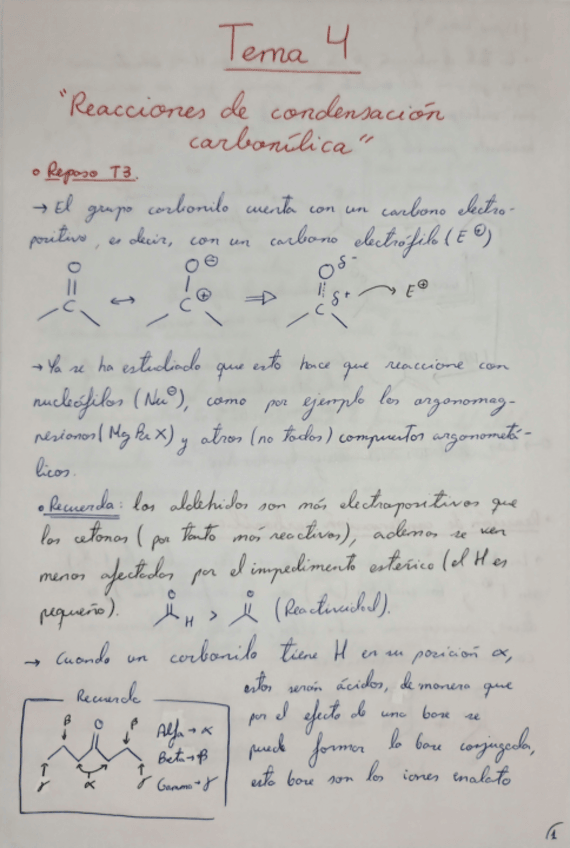 Tema 4
"Reacciones de condensación
carbonílica"
• Repaso T3.
→ El grupo carbonilo cuenta con un carbono electro-
positivo, es decir, con un carbono electrófilo (E⊕)
O O⊖ Oδ-
C ↔ C⊕ ⇒ Cδ+ → E⊕
→ Ya se ha estudiado que esto hace que reaccione con
nucleófilos (Nu⊖), como por ejemplo los organomag-
nesianos (MgRX) y otros (no todos) compuestos organometá-
licos.
• Recuerda: los aldehidos son más electropositivos que
las cetonas (por tanto más reactivos), además se ven
menos afectados por el impedimento estérico (el H es
pequeño). O H > O (Reactividad).
→ Cuando un carbonilo tiene H en su posición α,
estos serán ácidos, de manera que
por el efecto de una base se
puede formar la base conjugada,
esta base son los iones enolato
Recuerda
β O β
γ α γ
Alfa → α
Beta → β
Gamma → γ
1